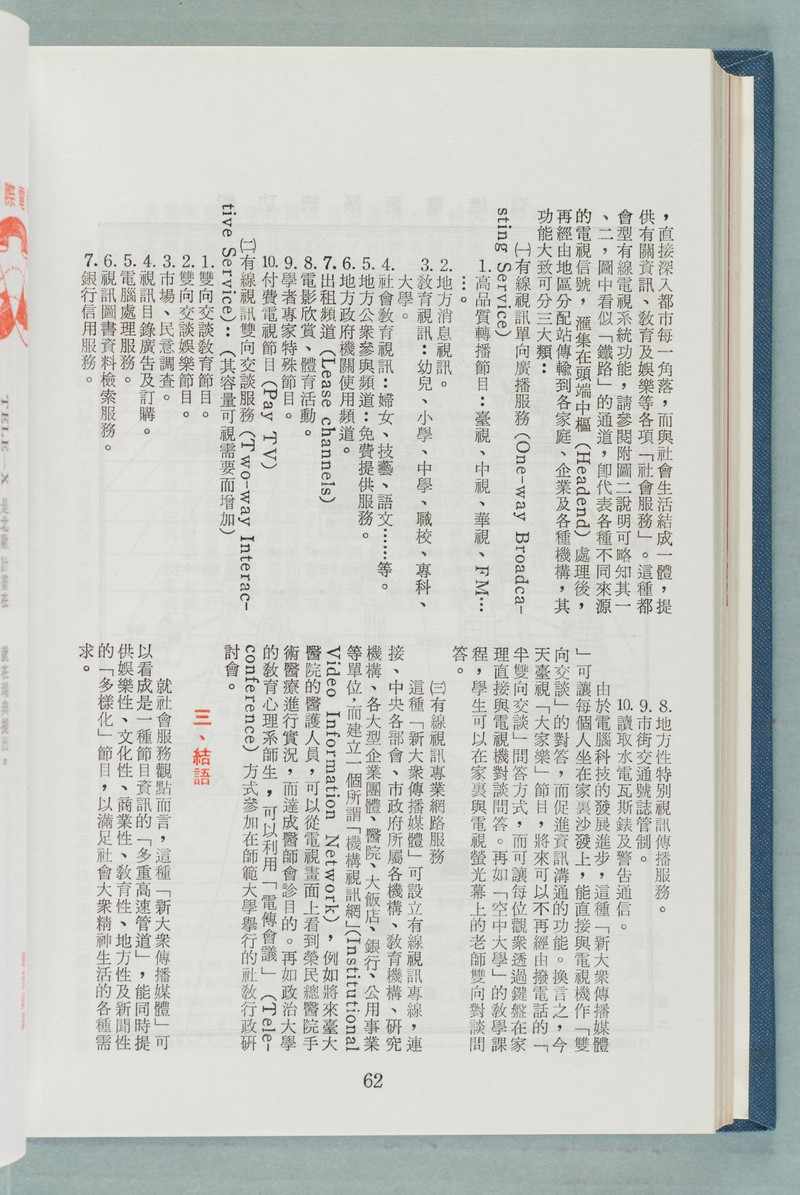 ，直接深入都市每一角落，而與社會生活結成一體，提
供有關資訊、敎育及娛樂等各項「社會服務」。這種都
會型有線電視系統功能，請參閱附圖二說明可略知其一
、二，圖中看似「鐵路」的通道，卽代表各種不同來源
的電視信號，滙集在頭端中樞（Headend）處理後，
再經由地區分配站傳輸到各家庭、企業及各種機構，其
功能大致可分三大類：
㈠有線視訊單向廣播服務（One-way Broadca-
sting Service）
1.高品質轉播節目：臺視、中視、華視、FM…
…。
2.地方消息視訊。
3.敎育視訊：幼兒、小學、中學、職校、專科、
大學。
4.社會敎育視訊：婦女、技藝、語文……等。
5.地方公衆參與頻道：免費提供服務。
6.地方政府機關使用頻道。
7.出租頻道（Lease channels）
8.電影欣賞、體育活動。
9.學者專家特殊節目。
10.付費電視節目（Pay TV）
㈡有線視訊雙向交談服務（Two-way Interac-
tive Service）：（其容量可視需要而增加）
1.雙向交談敎育節目。
2.雙向交談娛樂節目。
3.市場、民意調查。
4.視訊目錄廣告及訂購。
5.電腦處理服務。
6.視訊圖書資料檢索服務。
7.銀行信用服務。
8.地方性特別視訊傳播服務。
9.市街交通號誌管制。
10.讀取水電瓦斯錶及警告通信。
由於電腦科技的發展進步，這種「新大衆傳播媒體
」可讓每個人坐在家裏沙發上，能直接與電視機作「雙
向交談」的對答，而促進資訊溝通的功能。換言之，今
天臺視「大家樂」節目，將來可以不再經由撥電話的「
半雙向交談」問答方式，而可讓每位觀衆透過鍵盤在家
理直接與電視機對談問答。再如「空中大學」的敎學課
程，學生可以在家裏與電視螢光幕上的老師雙向對談問
答。
㈢有線視訊專業網路服務
這種「新大衆傳播媒體」可設立有線視訊專線，連
接、中央各部會、市政府所屬各機構、敎育機構、硏究
機構、各大型企業團體、醫院、大飯店、銀行、公用事業
等單位，而建立一個所謂「機構視訊網」（Institutional
Video Information Network），例如將來臺大
醫院的醫護人員，可以從電視畫面上看到榮民總醫院手
術醫療進行實況，而達成醫師會診目的。再如政治大學
的敎育心理系師生，可以利用「電傳會議」（Tele-
conference）方式參加在師範大學擧行的社敎行政硏
討會。
三、結語
就社會服務觀點而言，這種「新大衆傳播媒體」可
以看成是一種節目資訊的「多重高速管道」，能同時提
供娛樂性、文化性、商業性、敎育性、地方性及新聞性
的「多樣化」節目，以滿足社會大衆精神生活的各種需
求。
62